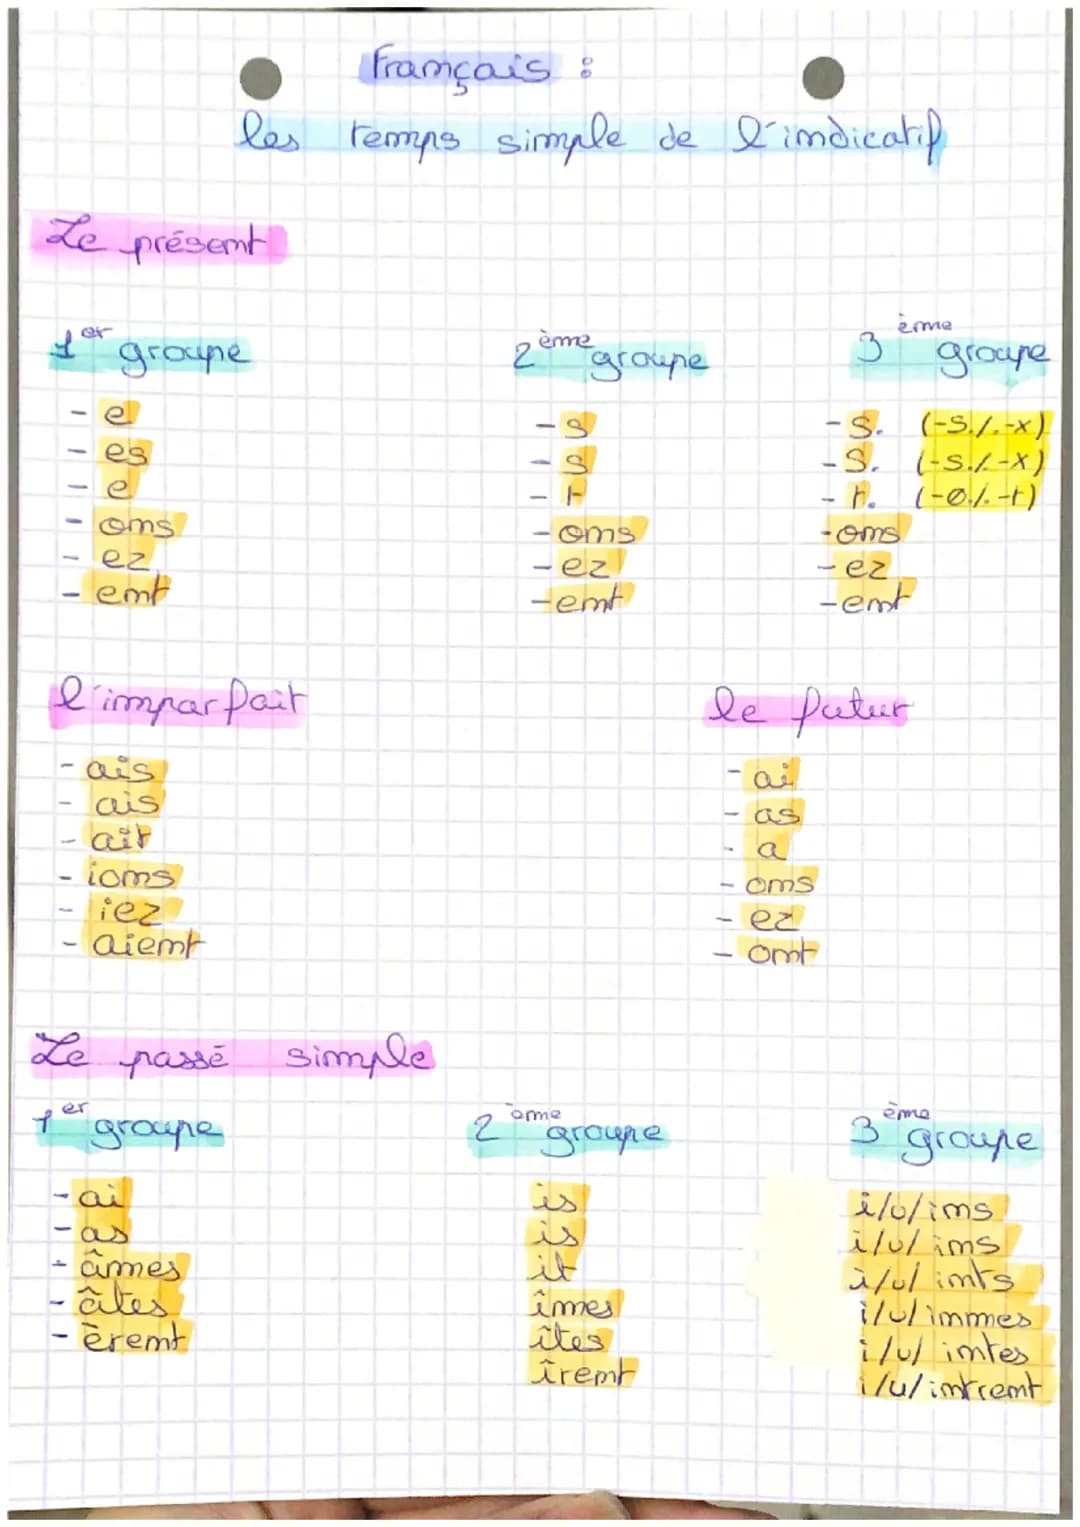 Français :
les temps simple de l'indicatif
Le présent
1er groupe
- e
- es
- e
- ons
- ez
- ent
2ème groupe
- s
- s
- t
- ons
- ez
- ent
3ème groupe
- s. (-s./.-x)
- s. (-s./.-x)
- t. (-o./.-t)
- ons
- ez
- ent
l'imparfait
- ais
- ais
- ait
- ions
- iez
- aient
le futur
- ai
- as
- a
- ons
- ez
- ont
Le passé simple
1er groupe
- ai
- as
- âmes
- âtes
- èrent
2ème groupe
is
is
it
îmes
îtes
îrent
3ème groupe
i/u/ins
i/u/ins
i/u/ints
i/u/inmes
i/u/intes
i/u/intrent